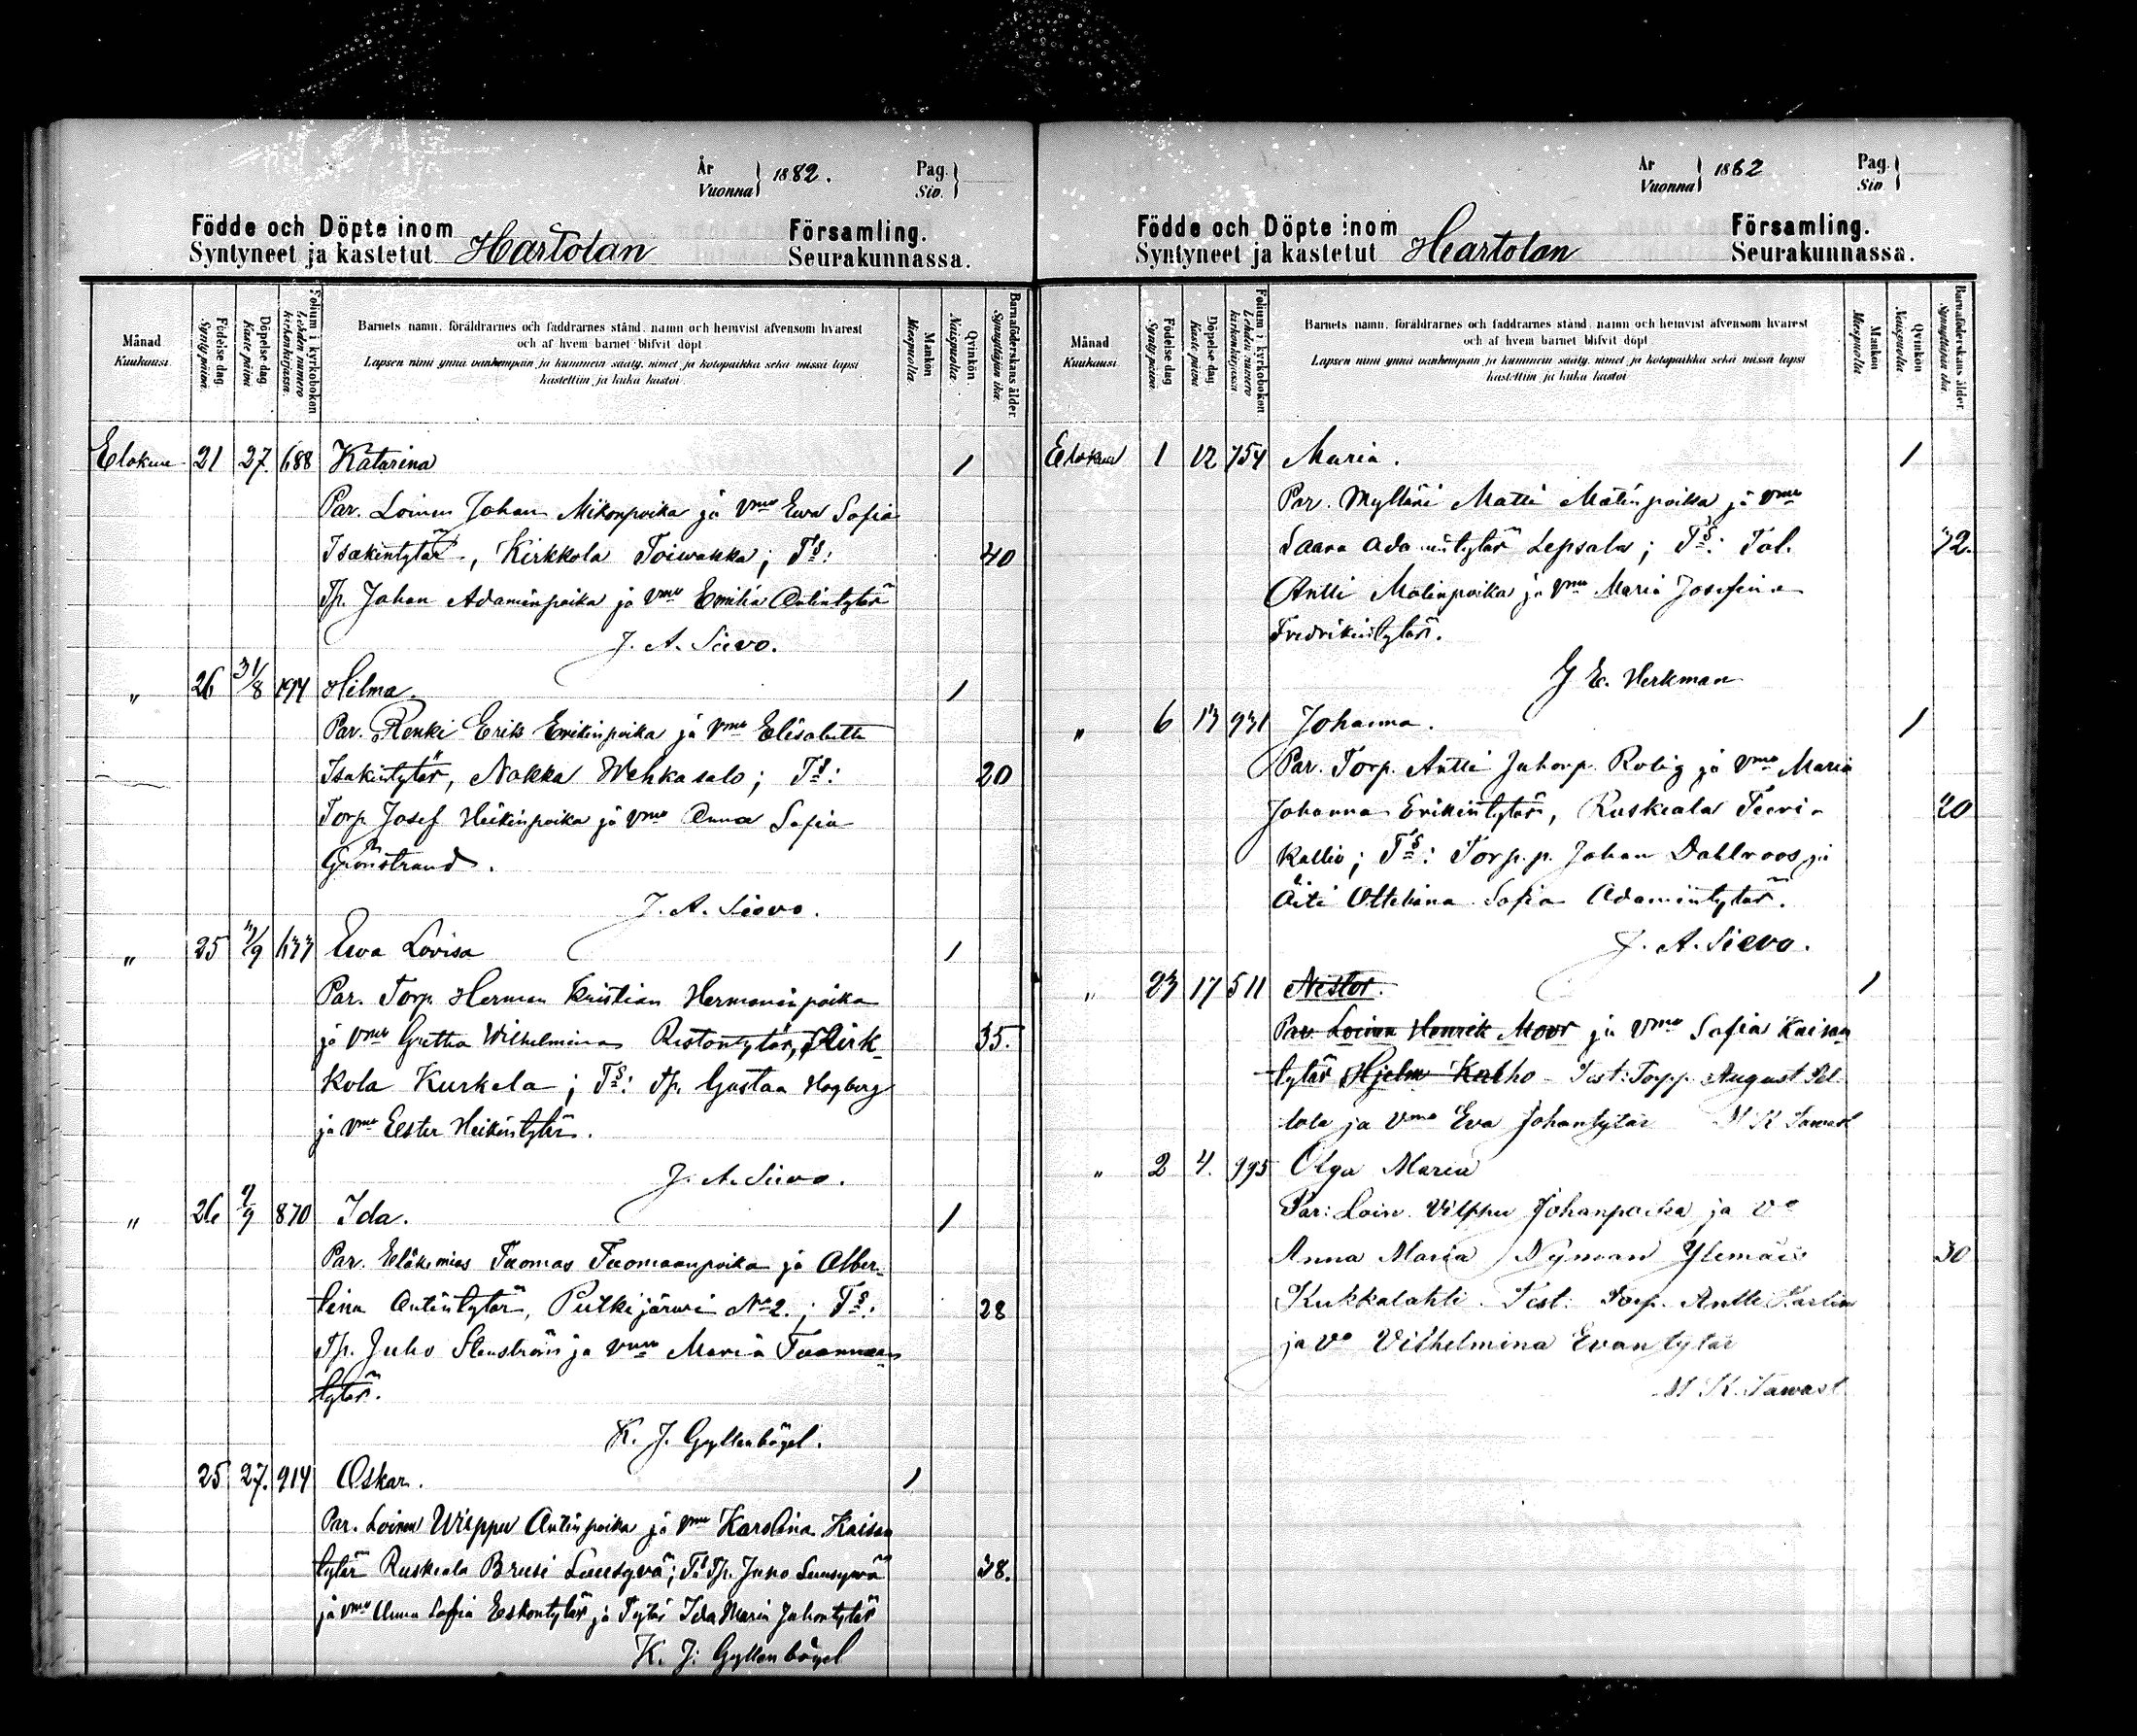 År
Vuonna 1882. Pag.
Siv.
Födde och Döpte inom Församling.
Syntyneet ja kastetut Hartolan Seurakunnassa.
Månad
Kuukausi.
Födelse dag
Synty päivä.
Döpelse dag
Kaste päivä
Folium i kyrkoboken
Lehden numero
kirkonkirjassa.
Barnets namn, föräldrarnes och faddrarnes stånd, namn och hemvist äfvensom hvarest
och af hvem barnet blifvit döpt
Lapsen nimi ynnä vanhempain ja kummein sääty, nimet ja kotopaikka sekä missä lapsi
kastettiin ja kuka kastoi
Mankön
Miespuolia.
Qvinkön
Naispuolia.
Barnaföderskans ålder
Synnyttäjän ikä.
Elokuu 21 27 688 Katarina 1
Par. Loinen Johan Mikonpoika ja vmo Ewa Sofia
Isakintytär, Kirkkola Toiwakka; Ts: 40
Tp. Johan Adaminpoika ja vmo Emilia Antintytär
J. A. Sievo.
" 26 31/8 194 Hilma. 1
Par. Renki Erik Erikinpoika ja vmo Elisabetta
Isakintytär, Nokka Wehkasalo; Ts: 20
Torp. Josef Heikinpoika ja vmo Anna Sofia
Grönstrand.
J. A. Sievo.
" 25 3/9 633 Ewa Lovisa 1
Par. Torp. Herman Kristian Hermaninpoika
ja vmo Gretha Wilhelmina Ristontytär, Kirk-
kola Kurkela; Ts: Tp. Gustaa Hogberg 35.
ja vmo Eester Heikintytär.
J. A. Sievo.
" 26 9/9 870 Ida. 1
Par. Eläkemies Tuomas Tuomaanpoika ja Alber-
tina Antintytär, Putkijärwi No 2.; Ts: 28
Tp. Juho Stenström ja vmo Maria Tuomaan
tytär.
K. J. Gyllenbögel.
25 27. 914 Oskar. 1
Par. Loinen Wilppu Antinpoika ja vmo Karolina Kaisan
tytär Ruskeala Brusi Suusyvä; Ts Tp. Juho Suusyvä 38.
ja vmo Anna Sofia Eskontytär ja Tytär Ida Maria Juhontytär
K. J. Gyllenbögel
År
Vuonna 1882 Pag.
Siv.
Födde och Döpte inom Församling.
Syntyneet ja kastetut Heartolan Seurakunnassa.
Månad
Kuukausi
Födelse dag
Synty päivä.
Döpelse dag
Kaste päivä
Folium i kyrkoboken
Lehden numero
kirkonkirjassa
Barnets namn, föräldrarnes och faddrarnes stånd, namn och hemvist äfvensom hvarest
och af hvem barnet blifvit döpt
Lapsen nimi ynnä vanhempain ja kummein sääty, nimet ja kotopaikka sekä missä lapsi
kastettiin ja kuka kastoi
Mankön
Miespuolia
Qvinkön
Naispuolia.
Barnaföderskans ålder
Synnyttäjän ikä.
Elokuu 1 12 754 Maria. 1
Par. Mylläri Matti Matinpoika ja vmo
Saara Adamintytär Lepsala; Ts: Tal. 32.
Antti Matinpoika ja vmo Maria Josefina
Fredrikintytär.
J E. Herkman
" 6 13 931 Johanna. 1
Par. Torp. Antti Juhonp. Rolig ja vmo Maria
Johanna Erikintytär, Ruskeala Teeri- 20
kallio; Ts: Torp. p. Johan Dahlroos ja
Äiti Otteliana Sofia Adamintytär.
J. A. Sievo.
" 23 17 511 Nestor. 1
Par Loinen Henrik Moor ja vmo Sofia Kaisan
tytär Hjelm Kalho Test: Torpp. August Pel-
tola ja vmo Eva Johantytär M K Tawast
" 2 4. 995 Olga Maria
Par: Loin. Vilppu Johanpoika ja vo
Anna Maria Nyman Ylemäis 30
Kukkalahti. Test: Torp. Antti Karlin
ja vo Vilhelmina Evantytär
M K. Tawast